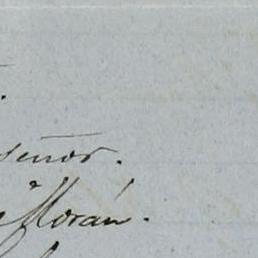 señor.
Morán.